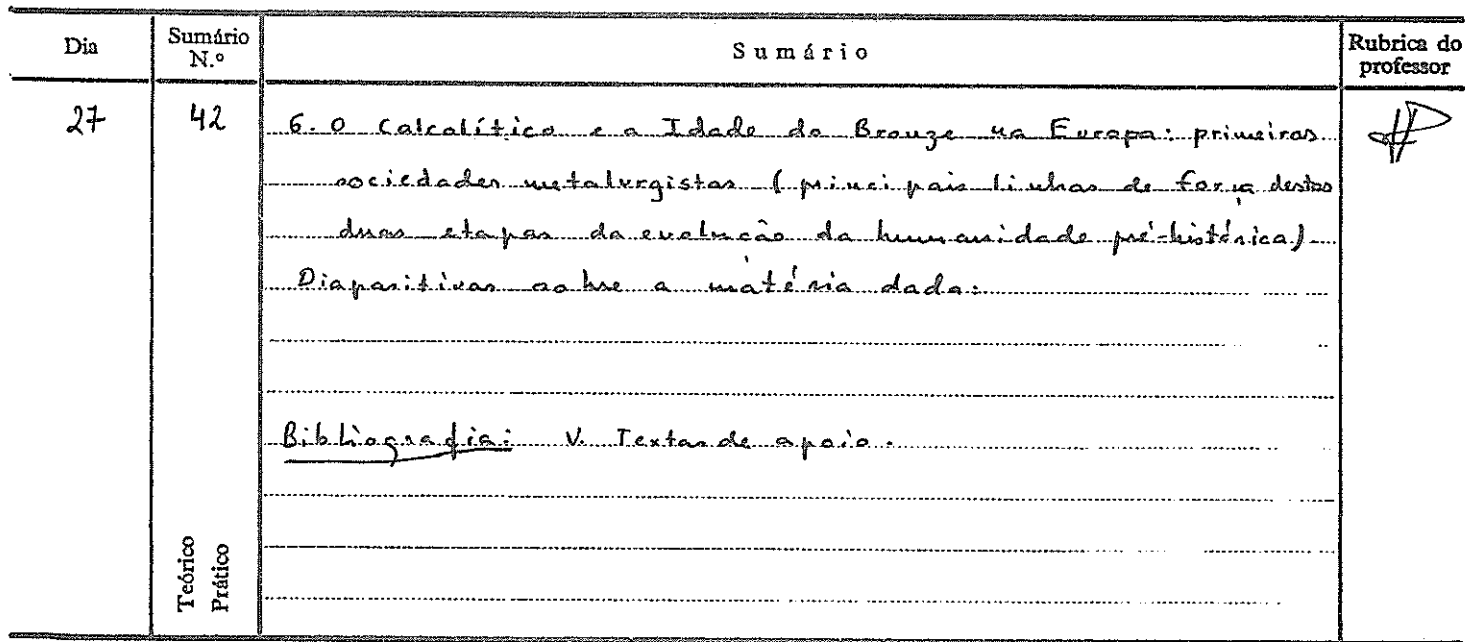 Dia
Sumário
N.º
Sumário
Rubrica do
professor
27
42
6. O Calcolítico e a Idade do Bronze na Europa: primeiras
sociedades metalurgistas (principais linhas de força destas
duas etapas da evolução da humanidade pré-histórica)
Diapositivos sobre a matéria dada.
Bibliografia: V. Textos de apoio.
Teórico
Prático